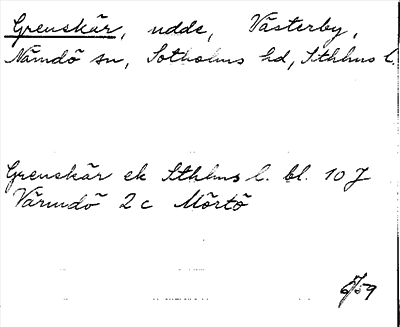 Grenskär, udde, Västerby,
Nämdö sn, Sotholms hd, Sthlms l.
Grenskär ek Sthlms l. bl. 10 J
Värmdö 2c Mörtö
59